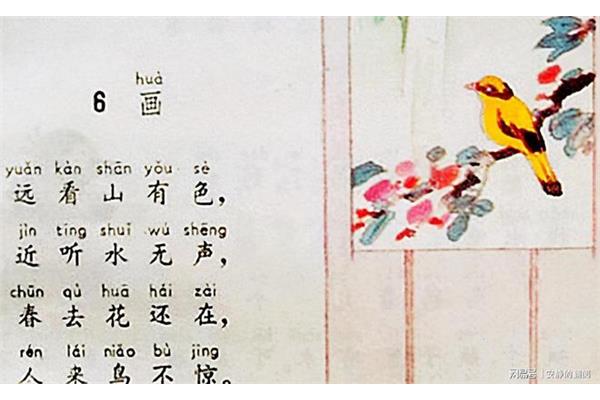 huà
6 画
yuǎn kàn shān yǒu sè
远看山有色，
jìn tīng shuǐ wú shēng
近听水无声，
chūn qù huā hái zài
春去花还在，
rén lái niǎo bù jīng
人来鸟不惊。
搜狐号@安静的